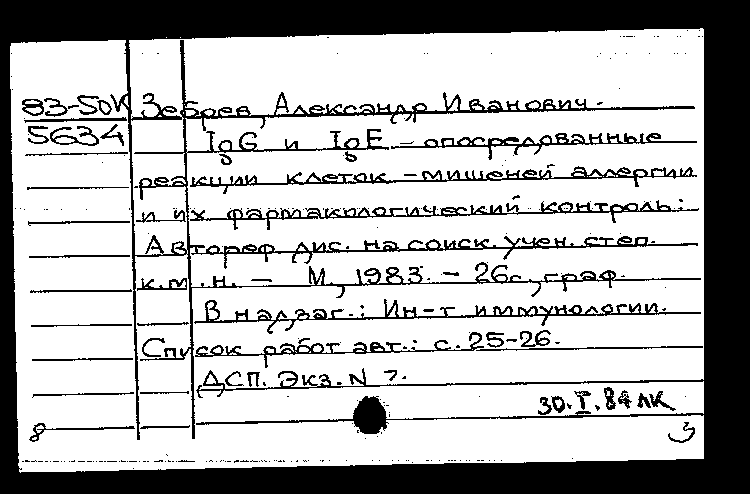 83-50К Зебрев, Александр Иванович.
5634 IgG и IgE – опосредованные
реакции клеток-мишеней аллергии
и их фармакологический контроль:
Автореф. дис. на соиск. учен. степ.
к.м.н. – М., 1983. – 26с., граф.
В надзаг.: Ин-т иммунологии.
Список работ авт.: с. 25-26.
ДСП. Экз. N 7.
30.I.84 ЛК
8